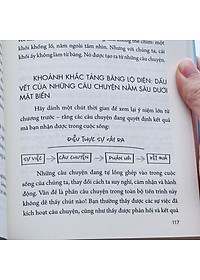 khối khổng lồ, nằm ngoài tầm nhìn. Nhưng chúng ta, cái
khối ấy không làm từ băng. Nó được tạo từ những câu chuyện.
KHOẢNH KHẮC TẢNG BĂNG LỘ DIỆN: DẤU
VẾT CỦA NHỮNG CÂU CHUYỆN NẰM SÂU DƯỚI
MẶT BIỂN
Hãy dành một chút thời gian để xem lại ý niệm lớn từ
chương trước – rằng các câu chuyện đang quyết định kết quả
mà bạn nhận được trong cuộc sống:
ĐIỀU THỰC SỰ XẢY RA
SỰ VIỆC → CÂU CHUYỆN → PHẢN HỒI → KẾT QUẢ
Những câu chuyện đang tự lồng ghép vào trong cuộc
sống của chúng ta, thay đổi cách ta suy nghĩ, cảm nhận và hành
động. Vấn đề là phần câu chuyện trong toàn bộ tiến trình này
không dễ thấy chút nào! Bạn thường thấy được các sự việc đã
kích hoạt câu chuyện, cũng như thấy được phản hồi và kết quả
117